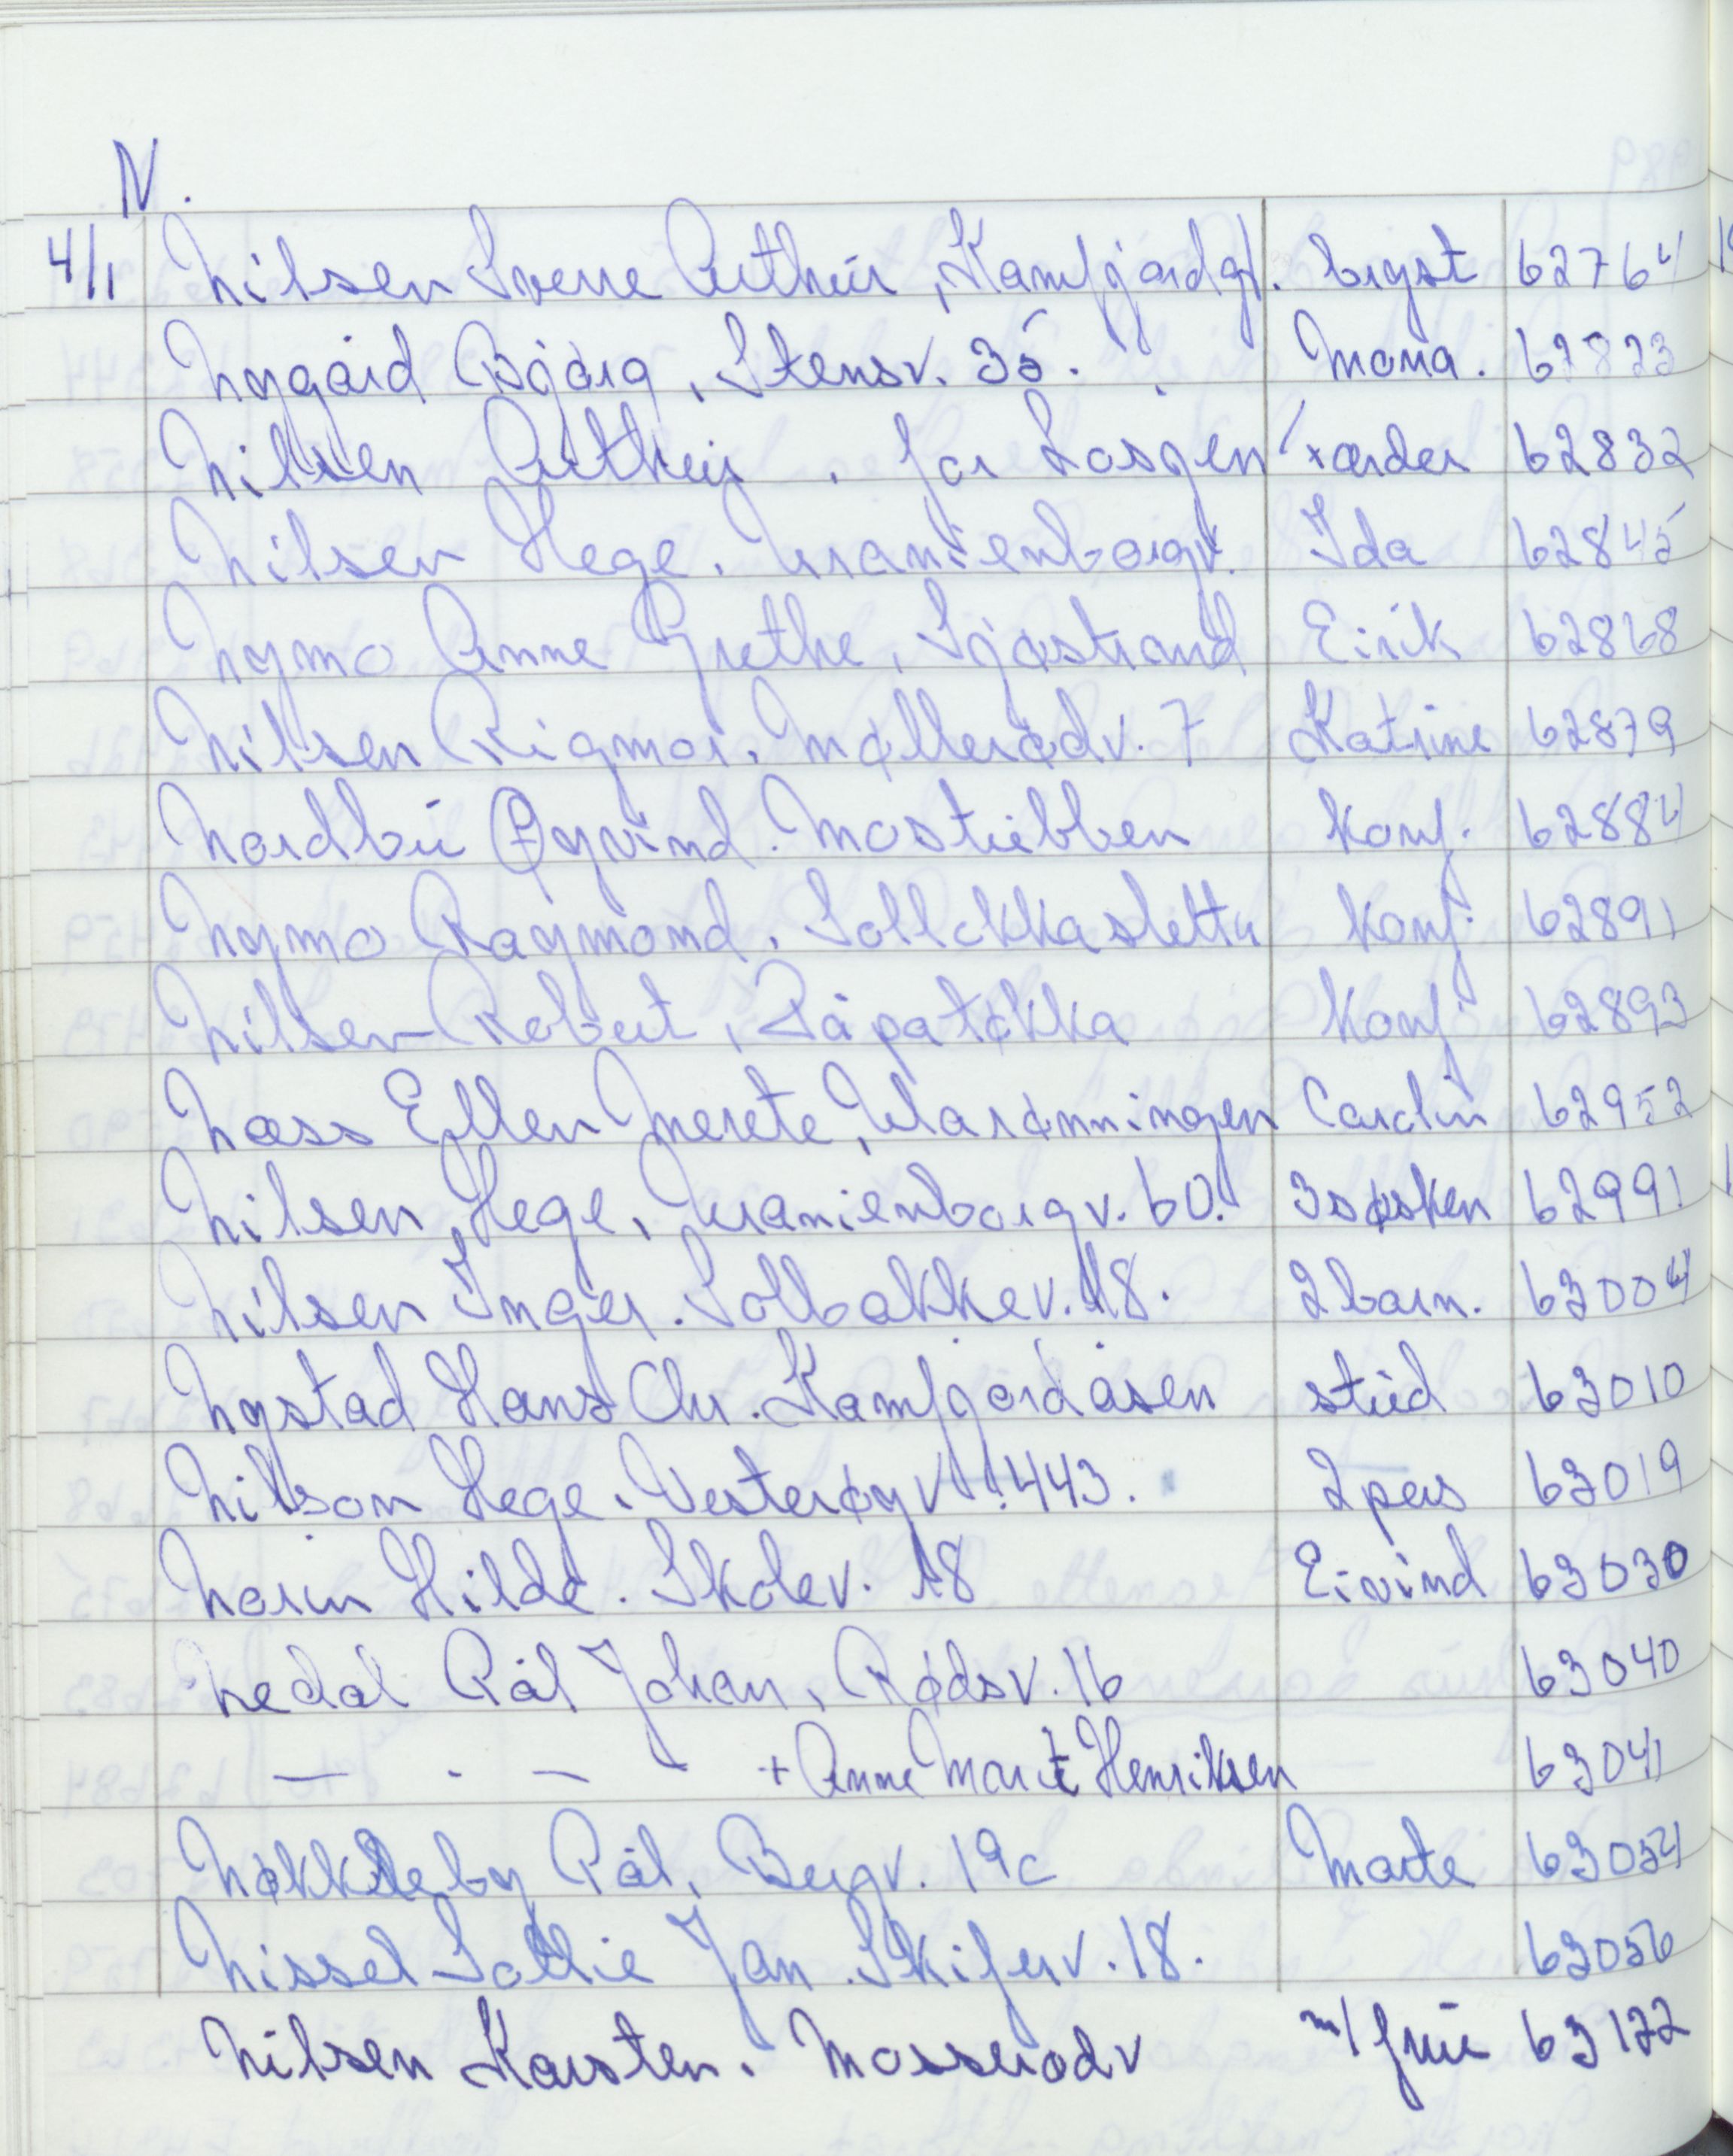 N.
4/1 Nilsen Sverre Arthur, Kamfjordgt. bryst 62764
Nygård Bjørg, Stensv. 35. Mona. 62823
Nilsen Arthur. for Losgen +order 62832
Nilsen Hege. Uranienborgv. Ida 62845
Nymo Anne Grethe, Sjøstrand Eirik 62868
Nilsen Rigmor. Møllerødv. 7 Katrine 62879
Nordbu Øyvind. Mostubben konf. 62884
Nymo Raymond. Solløkkasletta konf. 62891
Nilsen Robert, Råpatøkka konf 62893
Næss Ellen Merete, Ularønningen Carolin 62952
Nilsen Hege, Uranienborgv. 60. 3 søsken 62991
Nilsen Inger. Solbakkev. 18. 2 barn. 63004
Nystad Hans Chr. Kamfjordåsen stud 63010
Nilson Hege. Vesterøyv 443. 2 pers 63019
Norun Hilde. Skolev. 18 Eivind 63030
Nedal Pål Johan, Rødsv. 16 63040
— - — - + Anne Marit Henriksen 63041
Nøkkleby Pål, Bergv. 19c Marte 63054
Nissel Sollie Jan. Skiferv. 18. 63056
Nilsen Karsten. Mosserødv m/fru 63122